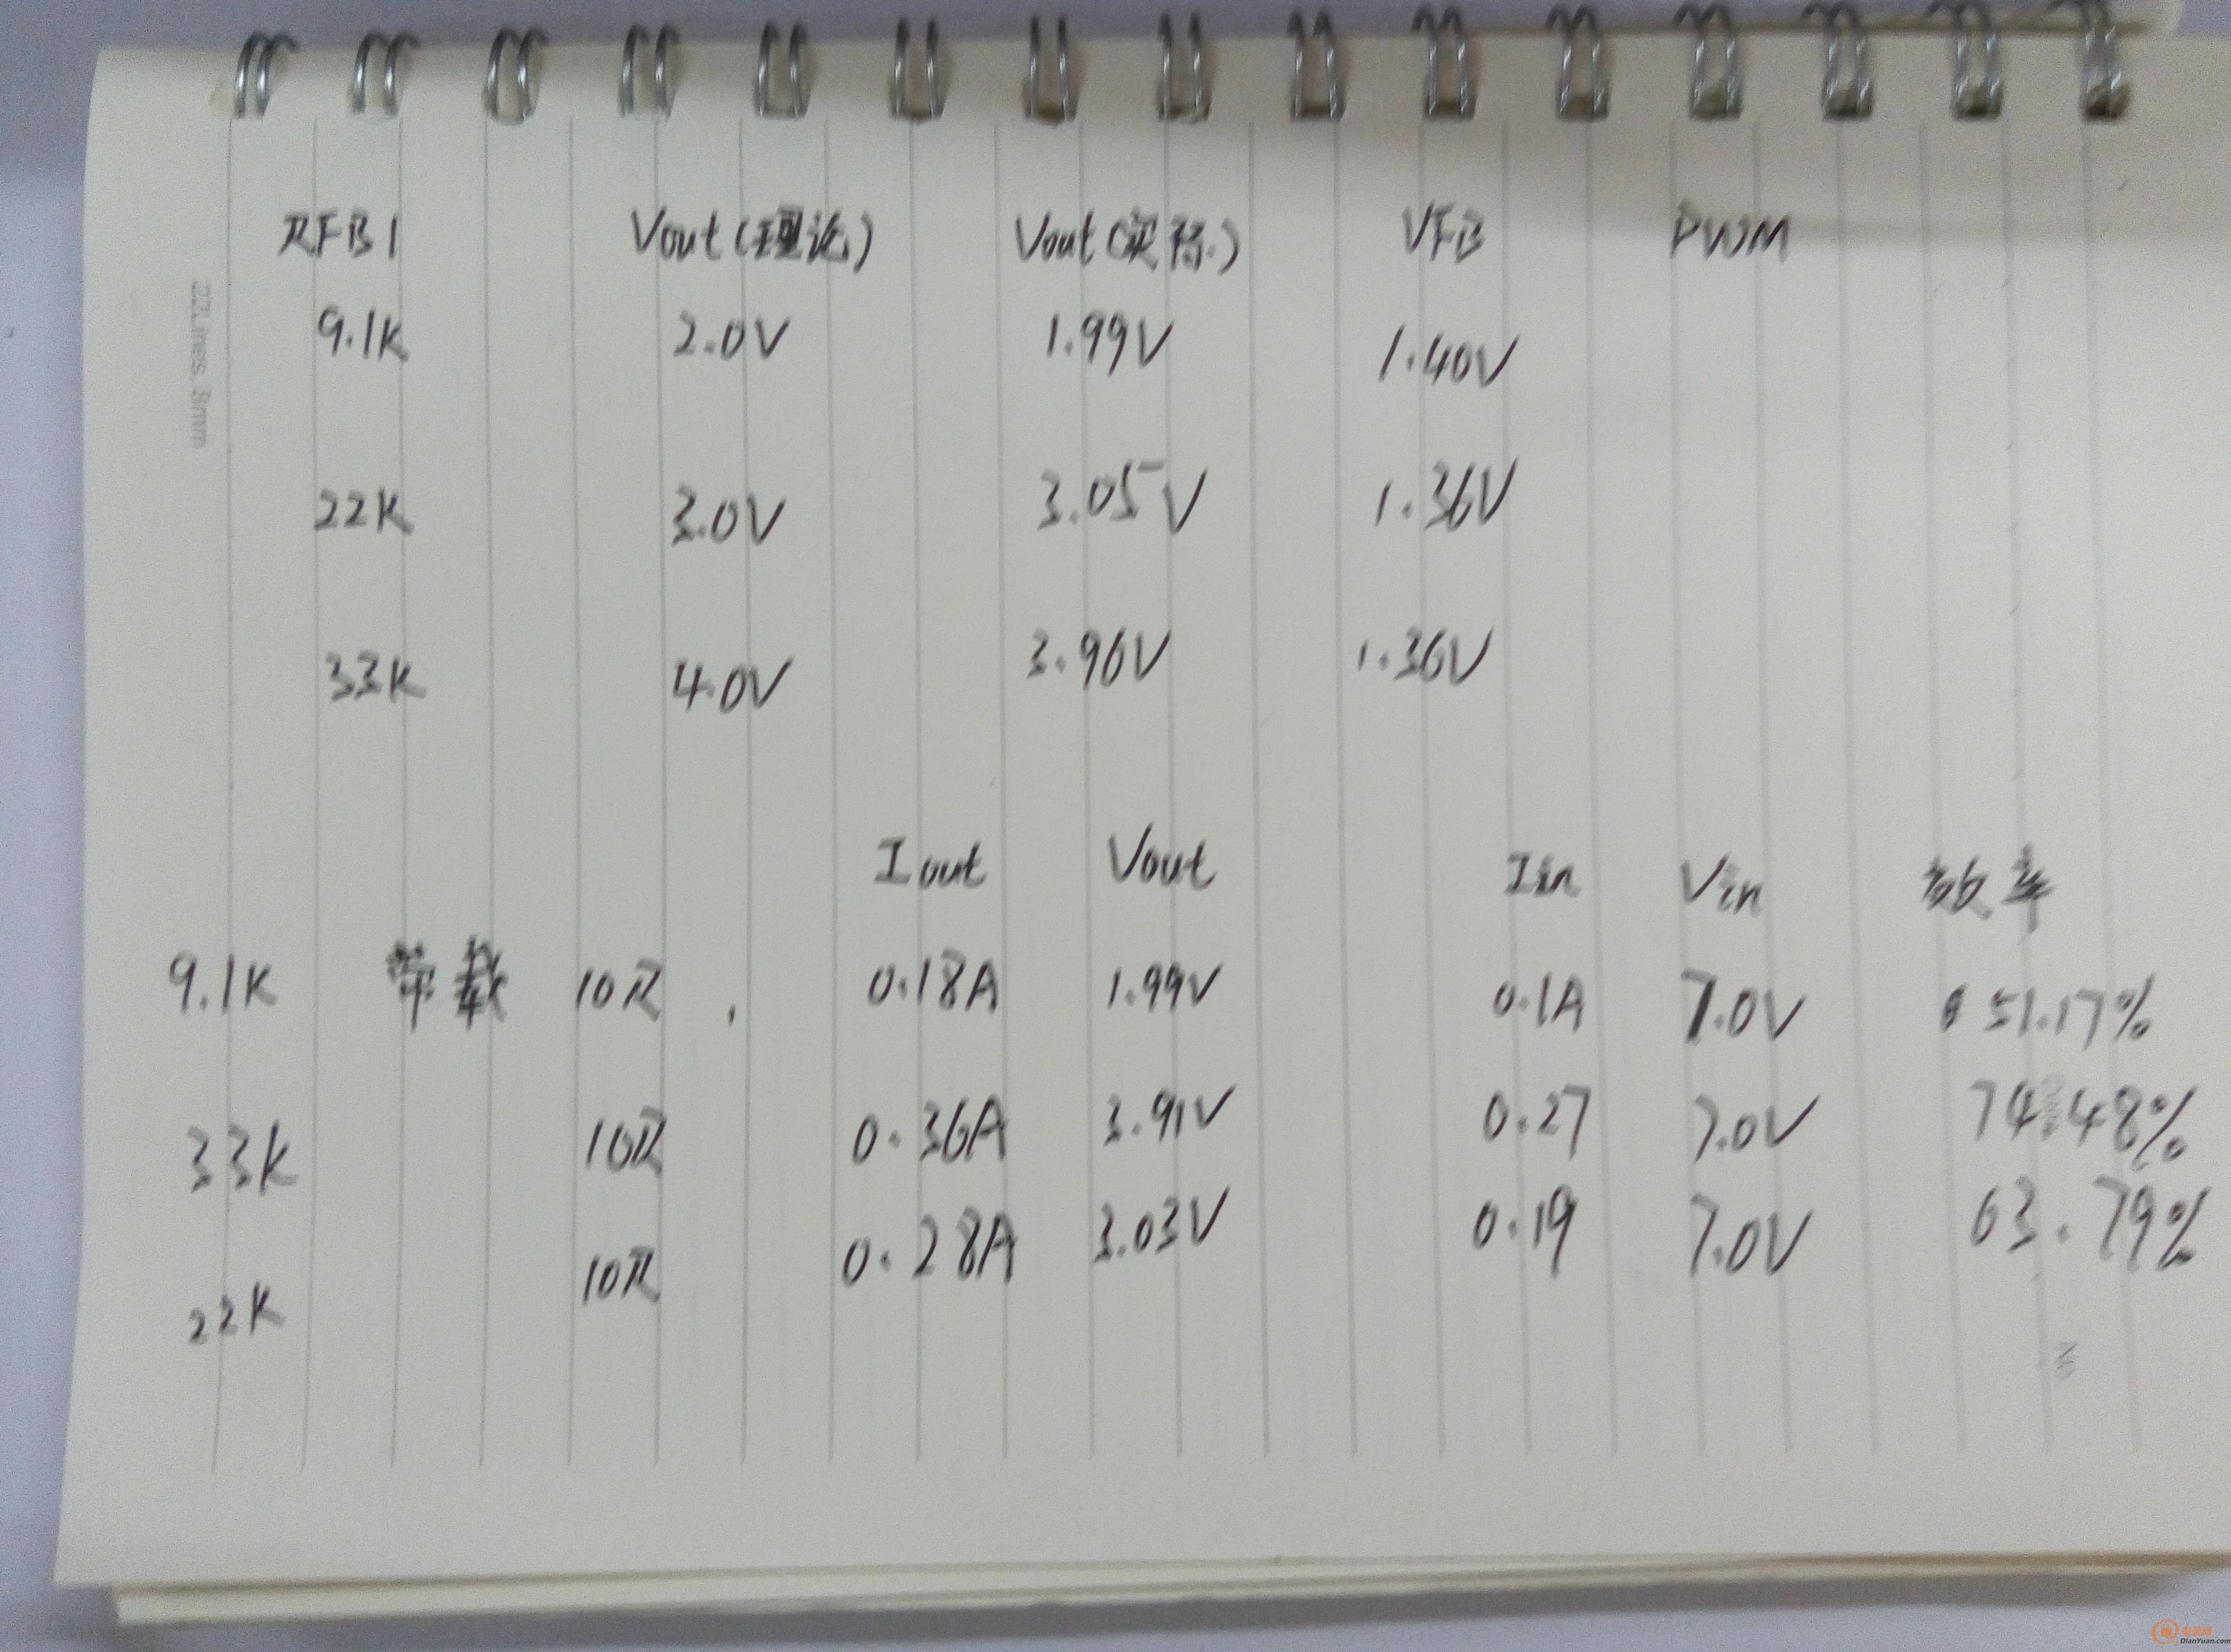 RFB1 Vout(理论) Vout(实际) VFB PWM
9.1K 2.0V 1.99V 1.40V
22K 3.0V 3.05V 1.36V
33K 4.0V 3.96V 1.36V
Iout Vout Iin Vin 效率
9.1K 带载 10R 0.18A 1.99V 0.1A 7.0V 51.17%
33K 10R 0.36A 3.91V 0.27 7.0V 74.48%
22K 10R 0.28A 3.03V 0.19 7.0V 63.79%
22Lines 8mm
No
电源网
DianYuan.com